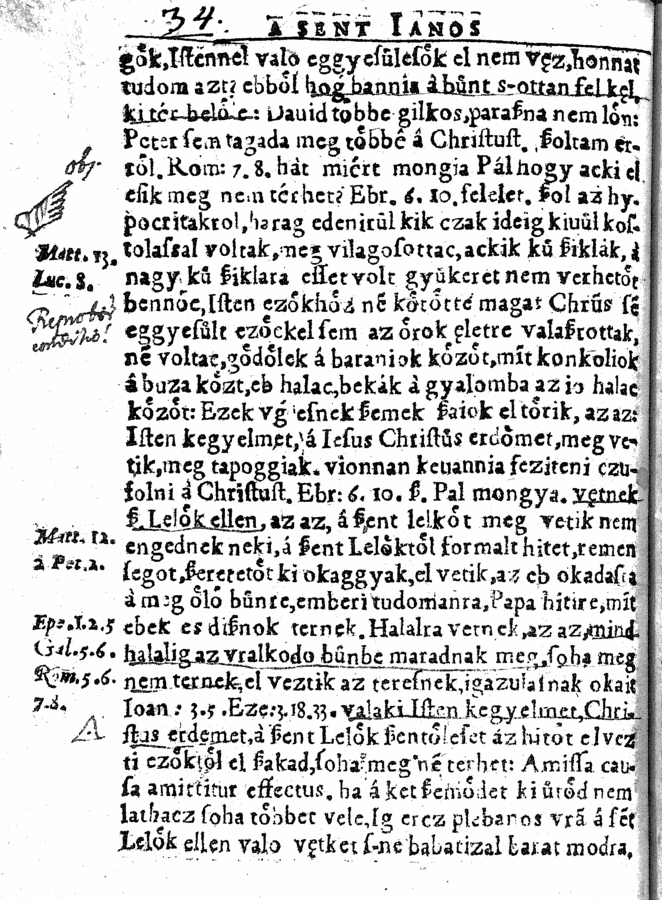 34.
A SENT IANOS
gők, Istennel valo eggyesülesők el nem vęz, honnat
tudom azt? ebből hoǵ bannia à bűnt s-ottan fel kęl,
ki tér belőle: Dauid többe gilkos, parasna nem lőn:
Peter sem tagada meg többé á Christust. ßoltam er-
ről. Rom: 7. 8. hát miért mongia Pál hogy acki el
esik meg nem térhet? Ebr. 6. 10. felelet. ßol az hy-
pocritakrol, harag edenirül kik czak ideig kiuül kos-
tolassal voltak, meg vilagosottac, ackik kű ßiklák, á
nagy kű ßiklara esset volt gyűkeret nem verhetőt
bennőc, Isten ezőkhőz nē kőtőtte magat Chrūs sē
eggyesült ezőckel sem az őrok ęletre valaßtottak,
nē voltac, gődőlek á baraniok kőzőt, mīt konkoliok
á buza kőzt, eb halac, bekák à gyalomba az io halac
kőzőt: Ezek vǵ esnek ßemek ßaiok el tőrik, az az:
Isten kegyelmet, á Iesus Christűs erdőmet, meg ve-
tik, meg tapoggiak. vionnan keuannia fesziteni czu-
folni à Christust. Ebr: 6. 10. ß. Pal mongya. vętnek
ß. Lelők ellen, az az, á ßent lelkőt meg vetik nem
engednek neki, á ßent Lelőktől formalt hitet, remen
segot, ßeretetőt ki okaggyak, el vetik, az eb okadasra
à meg őlő bűnre, emberi tudomanra, Papa hitire, mīt
ebek es dißnok ternek. Halalra vetnek, az az, mind
halalig az vralkodo bűnbe maradnak meg, soha meg
nem ternek, el veztik az teresnek, igazulasnak okait
Ioan: 3. 5. Eze: 3. 18. 33. valaki Isten kegyelmet, Chri-
stus erdemet, à ßent Lelők ßentőleset áz hitőt elvez
ti ezőktől el ßakad, soha meg nē terhet: Amissa cau-
sa amittitur effectus. ha á ket ßemődet ki űtőd nem
lathacz soha tőbbet vele, Ig ercz plebanos vrā á sēt
Lelők ellen valo vętket s-ne babatizal barat modra,
obj.
Matt. 13.
Luc. 8.
Matt. 12.
2 Pet. 2.
Epe. 1. 2. 5
Gal. 5. 6.
Rom. 5. 6.
7. 8.
A